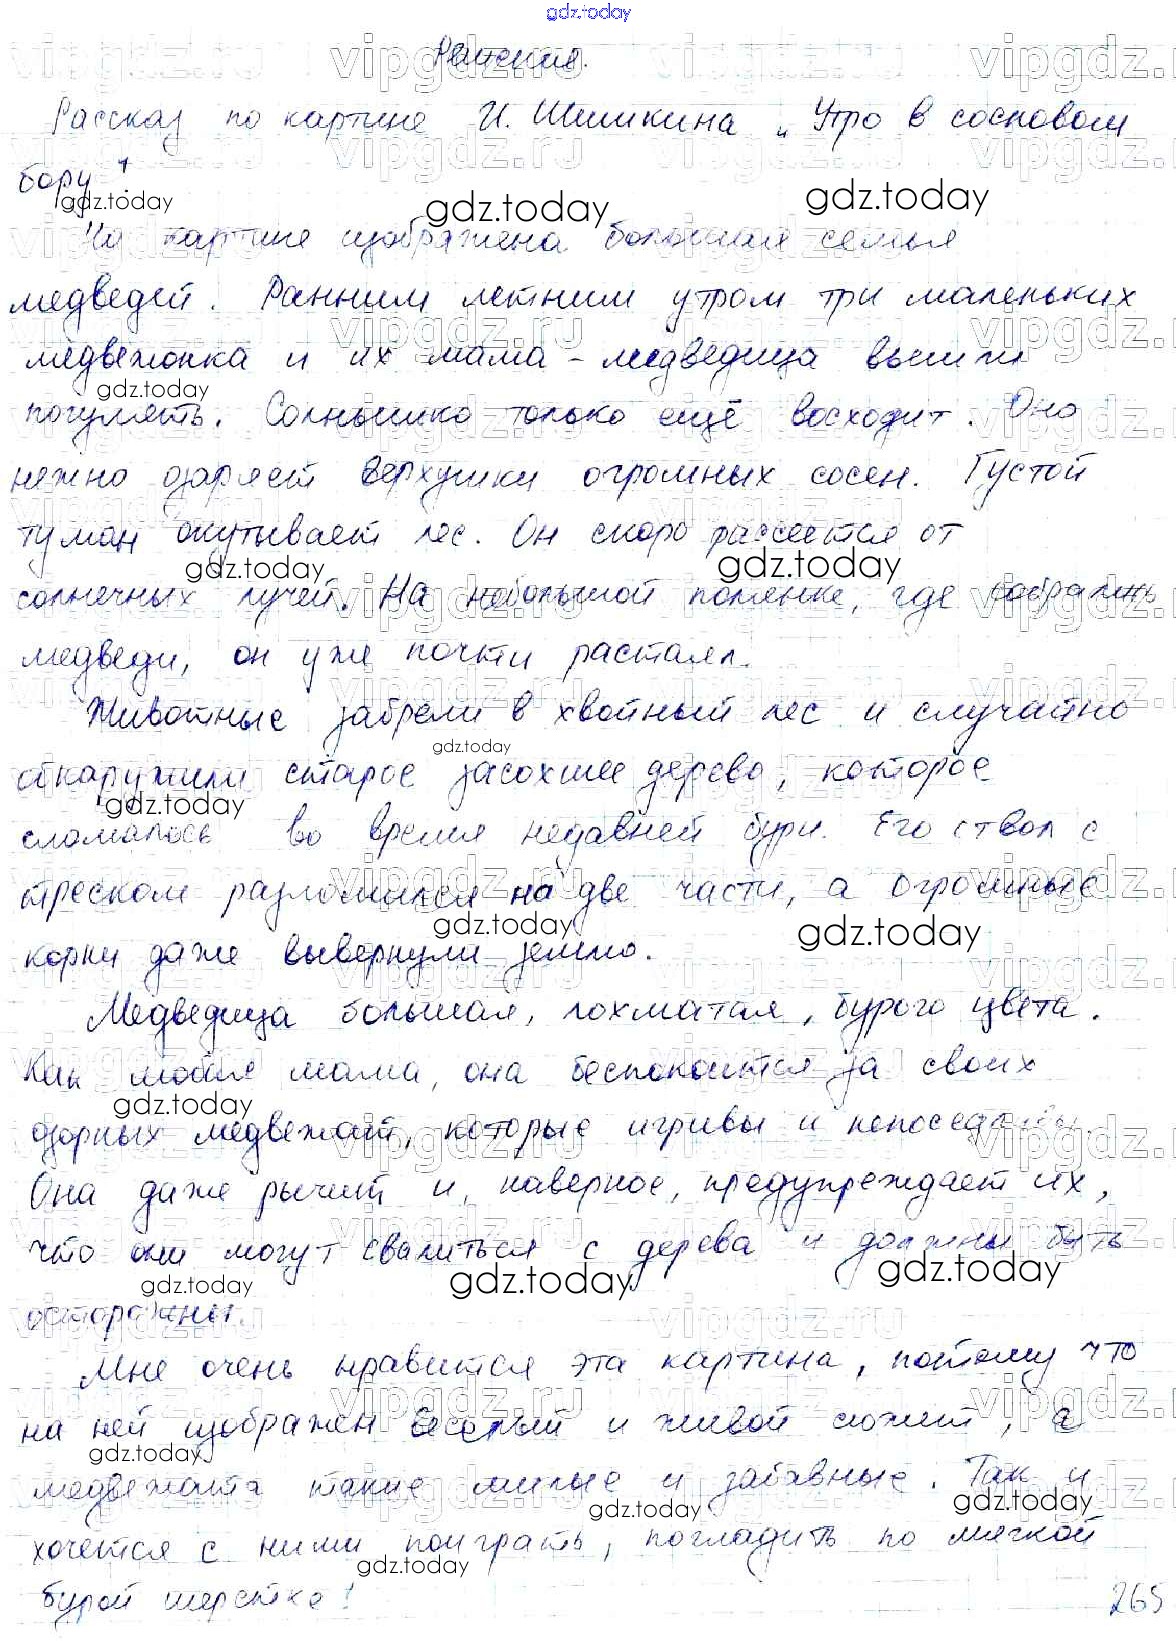 gdz.today
Решение.
Рассказ по картине И. Шишкина „Утро в сосновом
бору".
На картине изображена большая семья
медведей. Ранним летним утром три маленьких
медвежонка и их мама - медведица вышли
погулять. Солнышко только ещё восходит. Оно
нежно озаряет верхушки огромных сосен. Густой
туман окутывает лес. Он скоро рассеется от
солнечных лучей. На небольшой полянке, где собрались
медведи, он уже почти растаял.
Животные забрели в хвойный лес и случайно
обнаружили старое засохшее дерево, которое
сломалось во время недавней бури. Его ствол с
треском разломился на две части, а огромные
корни даже вывернули землю.
Медведица большая, лохматая, бурого цвета.
Как любая мама, она беспокоится за своих
озорных медвежат, которые игривы и непоседливы.
Она даже рычит и, наверное, предупреждает их,
что они могут свалиться с дерева и должны быть
осторожны.
Мне очень нравится эта картина, потому что
на ней изображен веселый и живой сюжет, а
медвежата такие милые и забавные. Так и
хочется с ними поиграть, погладить по мягкой
бурой шерстке!
265